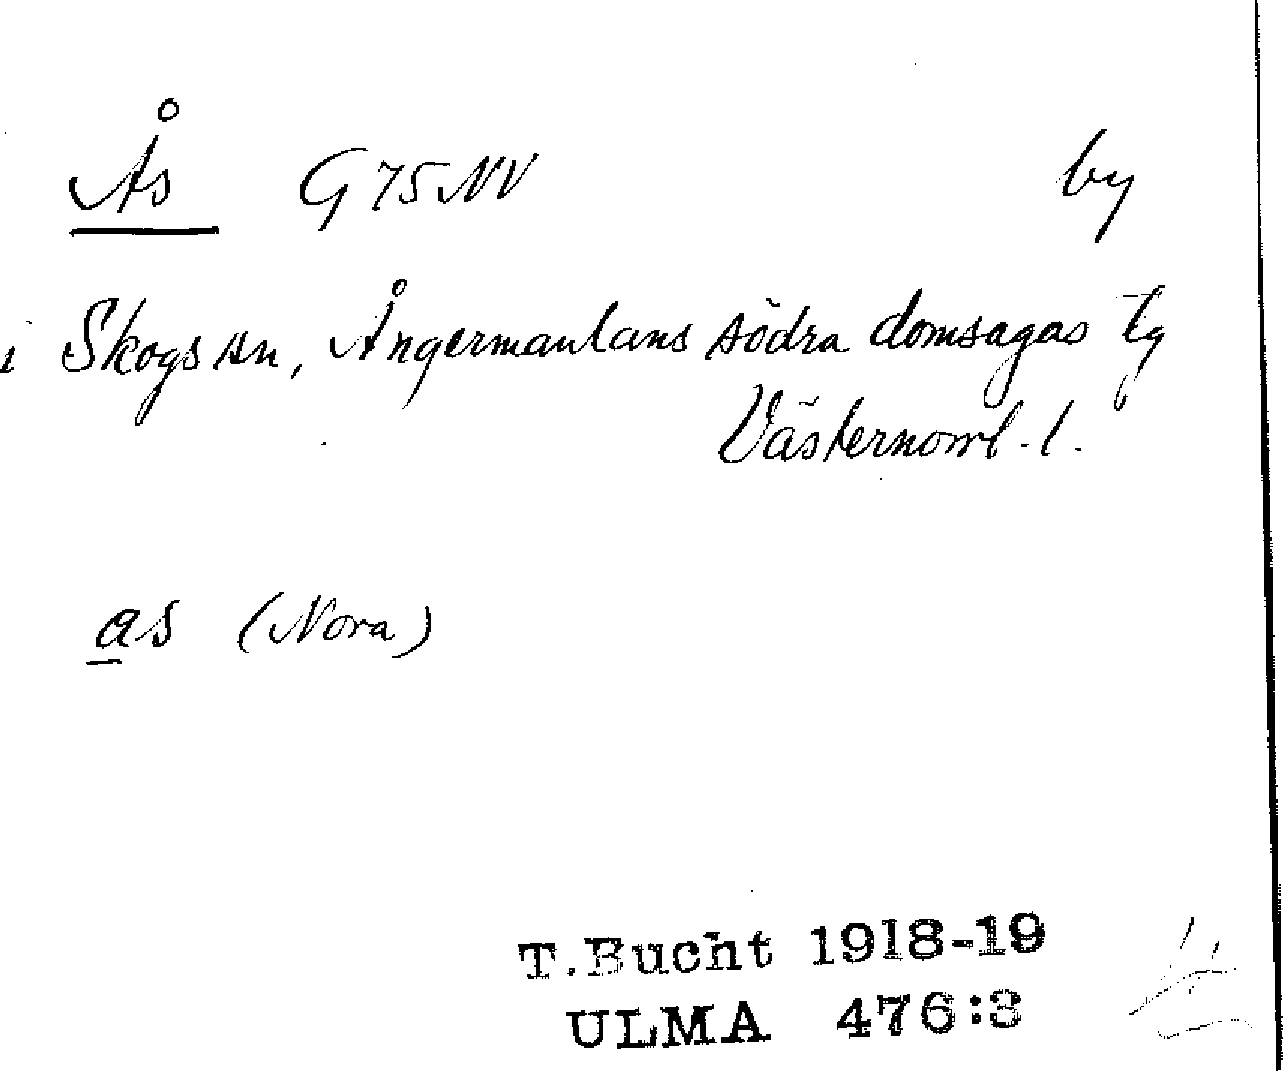 Ås G 75 NV by
i Skogs sn, Ångermanlans södra domsagas tg
Västernorrl. l.
as (Nora)
T. Bucht 1918-19
ULMA 476:3